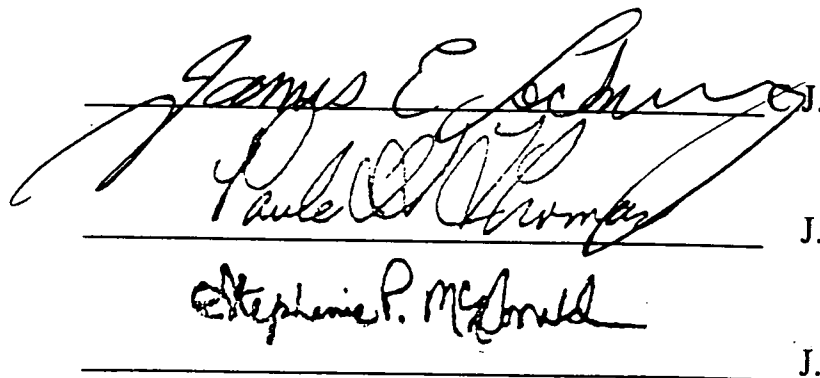 James E C.J.
Paula Thomas J.
Stephanie P. McDonald
J.